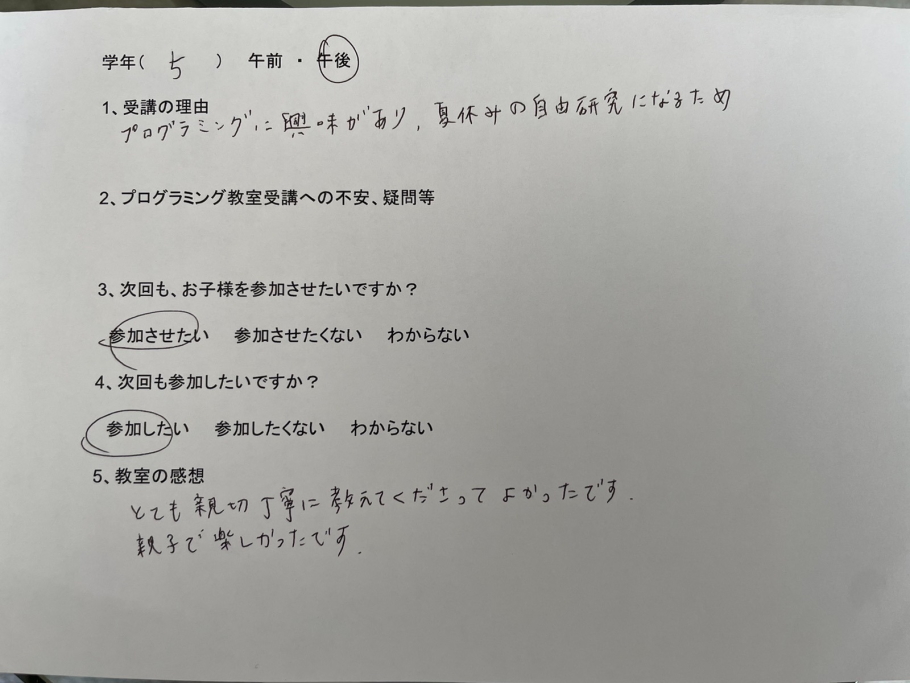 学年( 5 ) 午前 ・ 午後
1、受講の理由
プログラミングに興味があり、夏休みの自由研究になるため
2、プログラミング教室受講への不安、疑問等
3、次回も、お子様を参加させたいですか？
参加させたい 参加させたくない わからない
4、次回も参加したいですか？
参加したい 参加したくない わからない
5、教室の感想
とても親切丁寧に教えてくださってよかったです.
親子で楽しかったです.